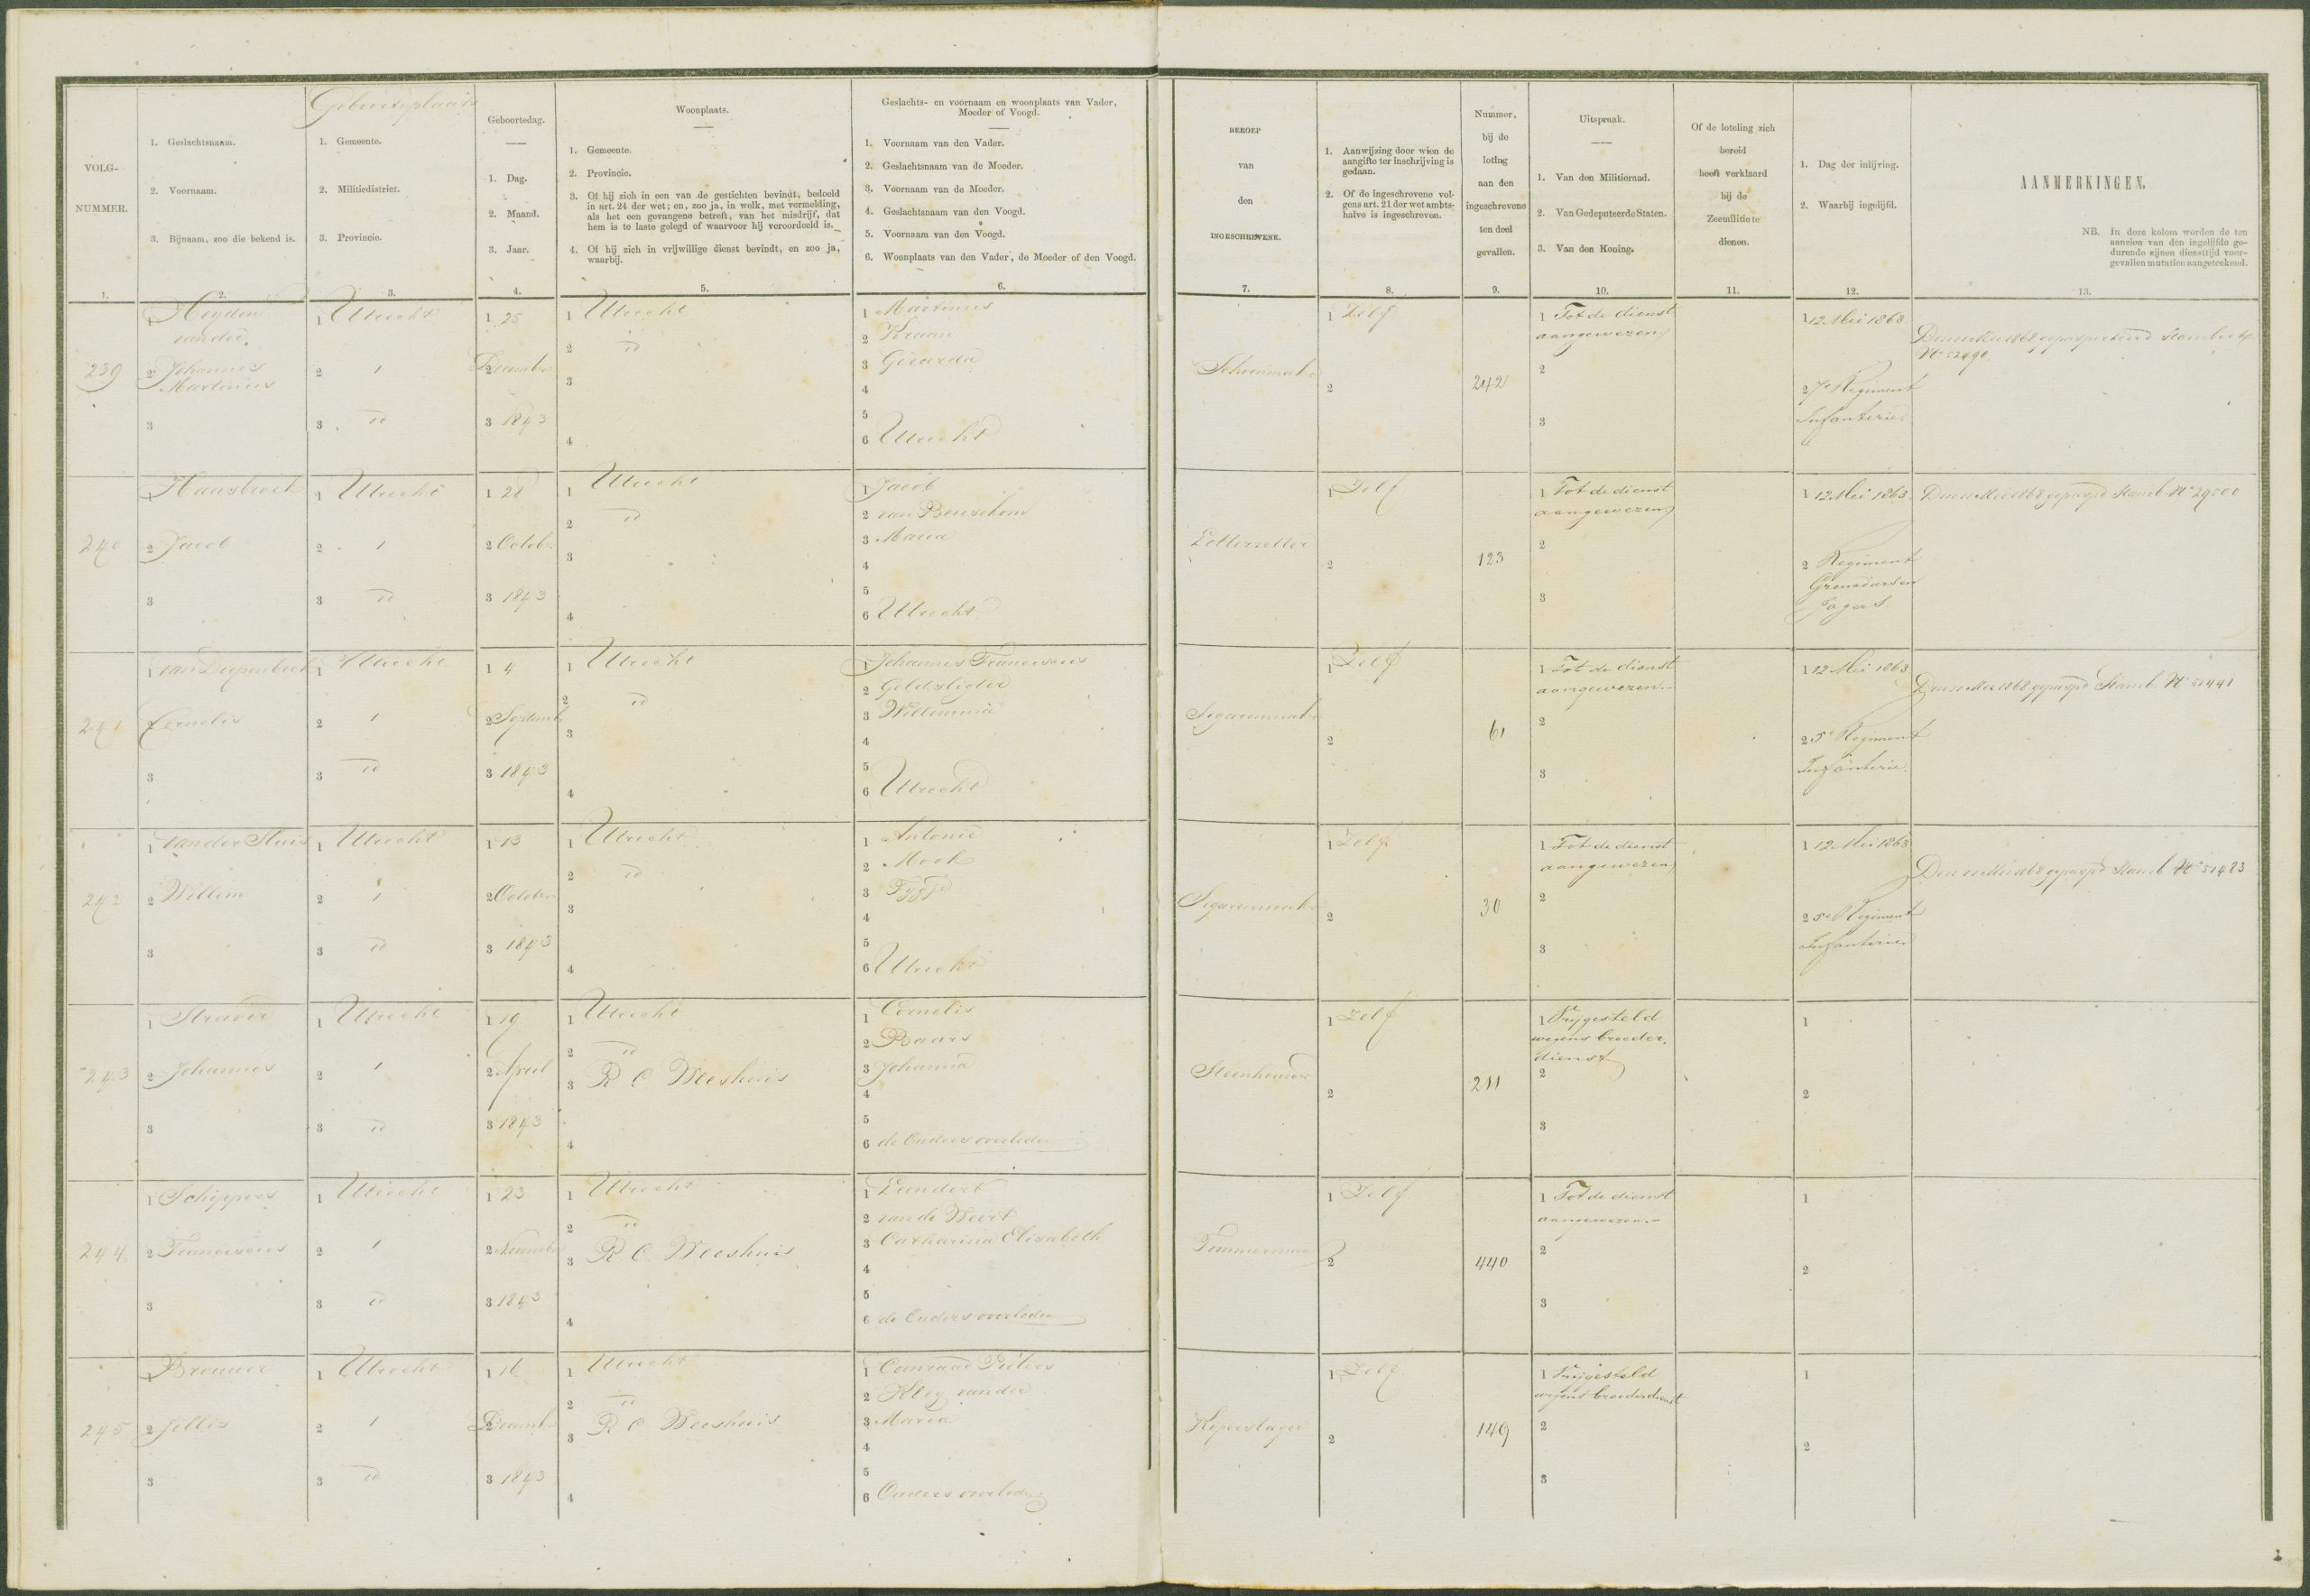 Geboorteplaats
VOLG-
NUMMER.
1. Geslachtsnaam.
2. Voornaam.
3. Bijnaam, zoo die bekend is.
1. Gemeente.
2. Militiedistrict.
3. Provincie.
Geboortedag.
1. Dag.
2. Maand.
3. Jaar.
Woonplaats.
1. Gemeente.
2. Provincie.
3. Of hij zich in een van de gestichten bevindt, bedoeld
in art. 24 der wet; en, zoo ja, in welk, met vermelding,
als het een gevangene betreft, van het misdrijf, dat
hem is te laste gelegd of waarvoor hij veroordeeld is.
4. Of hij zich in vrijwillige dienst bevindt, en zoo ja,
waarbij.
Geslachts- en voornaam en woonplaats van Vader,
Moeder of Voogd.
1. Voornaam van den Vader.
2. Geslachtsnaam van de Moeder.
3. Voornaam van de Moeder.
4. Geslachtsnaam van den Voogd.
5. Voornaam van den Voogd.
6. Woonplaats van den Vader, de Moeder of den Voogd.
BEROEP
van
den
INGESCHREVENE.
1. Aanwijzing door wien de
aangifte ter inschrijving is
gedaan.
2. Of de ingeschrevene vol-
gens art. 21 der wet ambts-
halve is ingeschreven.
Nummer,
bij de
loting
aan den
ingeschrevene
ten deel
gevallen.
Uitspraak.
1. Van den Militieraad.
2. Van Gedeputeerde Staten.
3. Van den Koning.
Of de loteling zich
bereid
heeft verklaard
bij de
Zeemilitie te
dienen.
1. Dag der inlijving.
2. Waarbij ingelijfd.
AANMERKINGEN.
NB. In deze kolom worden de ten
aanzien van den ingelijfde ge-
durende zijnen diensttijd voor-
gevallen mutatien aangeteekend.
1. 2. 3. 4. 5. 6. 7. 8. 9. 10. 11. 12. 13.
239
1 Heyden
van der
2 Johannes
Martinus
3
1 Utrecht
2 1
3 id
1 25
2 December
3 1843
1 Utrecht
2 id
3
4
1 Martinus
2 Kraan
3 Gerarda
4
5
6 Utrecht
Schoenmaker
1 Zelf
2
242
1 Tot de dienst
aangewezen
2
3
1 12 Mei 1863
2 7e Regiment
Infanterie
240
1 Hansbroek
2 Jacob
3
1 Utrecht
2 1
3 id
1 28
2 Octob.
3 1843
1 Utrecht
2 id
3
4
1 Jacob
2 van Beusekom
3 Maria
4
5
6 Utrecht
Letterzetter
1 Zelf
2
123
1 Tot de dienst
aangewezen
2
3
1 12 Mei 1863
2 Regiment
Grenadiers en
Jagers
Den 11 Mei 1868 gepaspd Stamb. No 29500
241
1 van Diepenbeek
2 Cornelis
3
1 Utrecht
2 1
3 id
1 4
2 Septemb
3 1843
1 Utrecht
2 id
3
4
1 Johannes Franciscus
2 Geldslijder
3 Willemina
4
5
6 Utrecht
Segarenmaker
1 Zelf
2
61
1 Tot de dienst
aangewezen
2
3
1 12 Mei 1863
2 5e Regiment
Infanterie
Den 11 Mei 1868 gepaspd Stamb. No 51441
242
1 van der Sluis
2 Willem
3
1 Utrecht
2 1
3 id
1 13
2 October
3 1843
1 Utrecht
2 id
3
4
1 Antonie
2 Mook
3 Fygje
4
5
6 Utrecht
Segarenmaker
1 Zelf
2
30
1 Tot de dienst
aangewezen
2
3
1 12 Mei 1863
2 5e Regiment
Infanterie
Den 11 Mei 1868 gepaspd Stamb No 51483
243
1 Straver
2 Johannes
3
1 Utrecht
2 1
3 id
1 19
2 April
3 1843
1 Utrecht
2 id
3 R C Weeshuis
4
1 Cornelis
2 Baars
3 Johanna
4
5
6 de Ouders overleden
Steenhouwer
1 Zelf
2
211
1 Vrijgesteld
wegens broeder,
dienst
2
3
1
2
244
1 Schippers
2 Franciscus
3
1 Utrecht
2 1
3 id
1 23
2 November
3 1843
1 Utrecht
2 id
3 R C Weeshuis
4
1 Leendert
2 van de Weert
3 Catharina Elisabeth
4
5
6 de Ouders overleden
Timmerman
1 Zelf
2
440
1 Tot de dienst
aangewezen
2
3
1
2
245
1 Brouwer
2 Jelles
3
1 Utrecht
2 1
3 id
1 16
2 December
3 1843
1 Utrecht
2 id
3 R C Weeshuis
4
1 Coenraad Pieters
2 Kley van der
3 Maria
4
5
6 Ouders overleden
Koperslager
1 Zelf
2
149
1 Vrijgesteld
wegens broederdienst
2
3
1
2